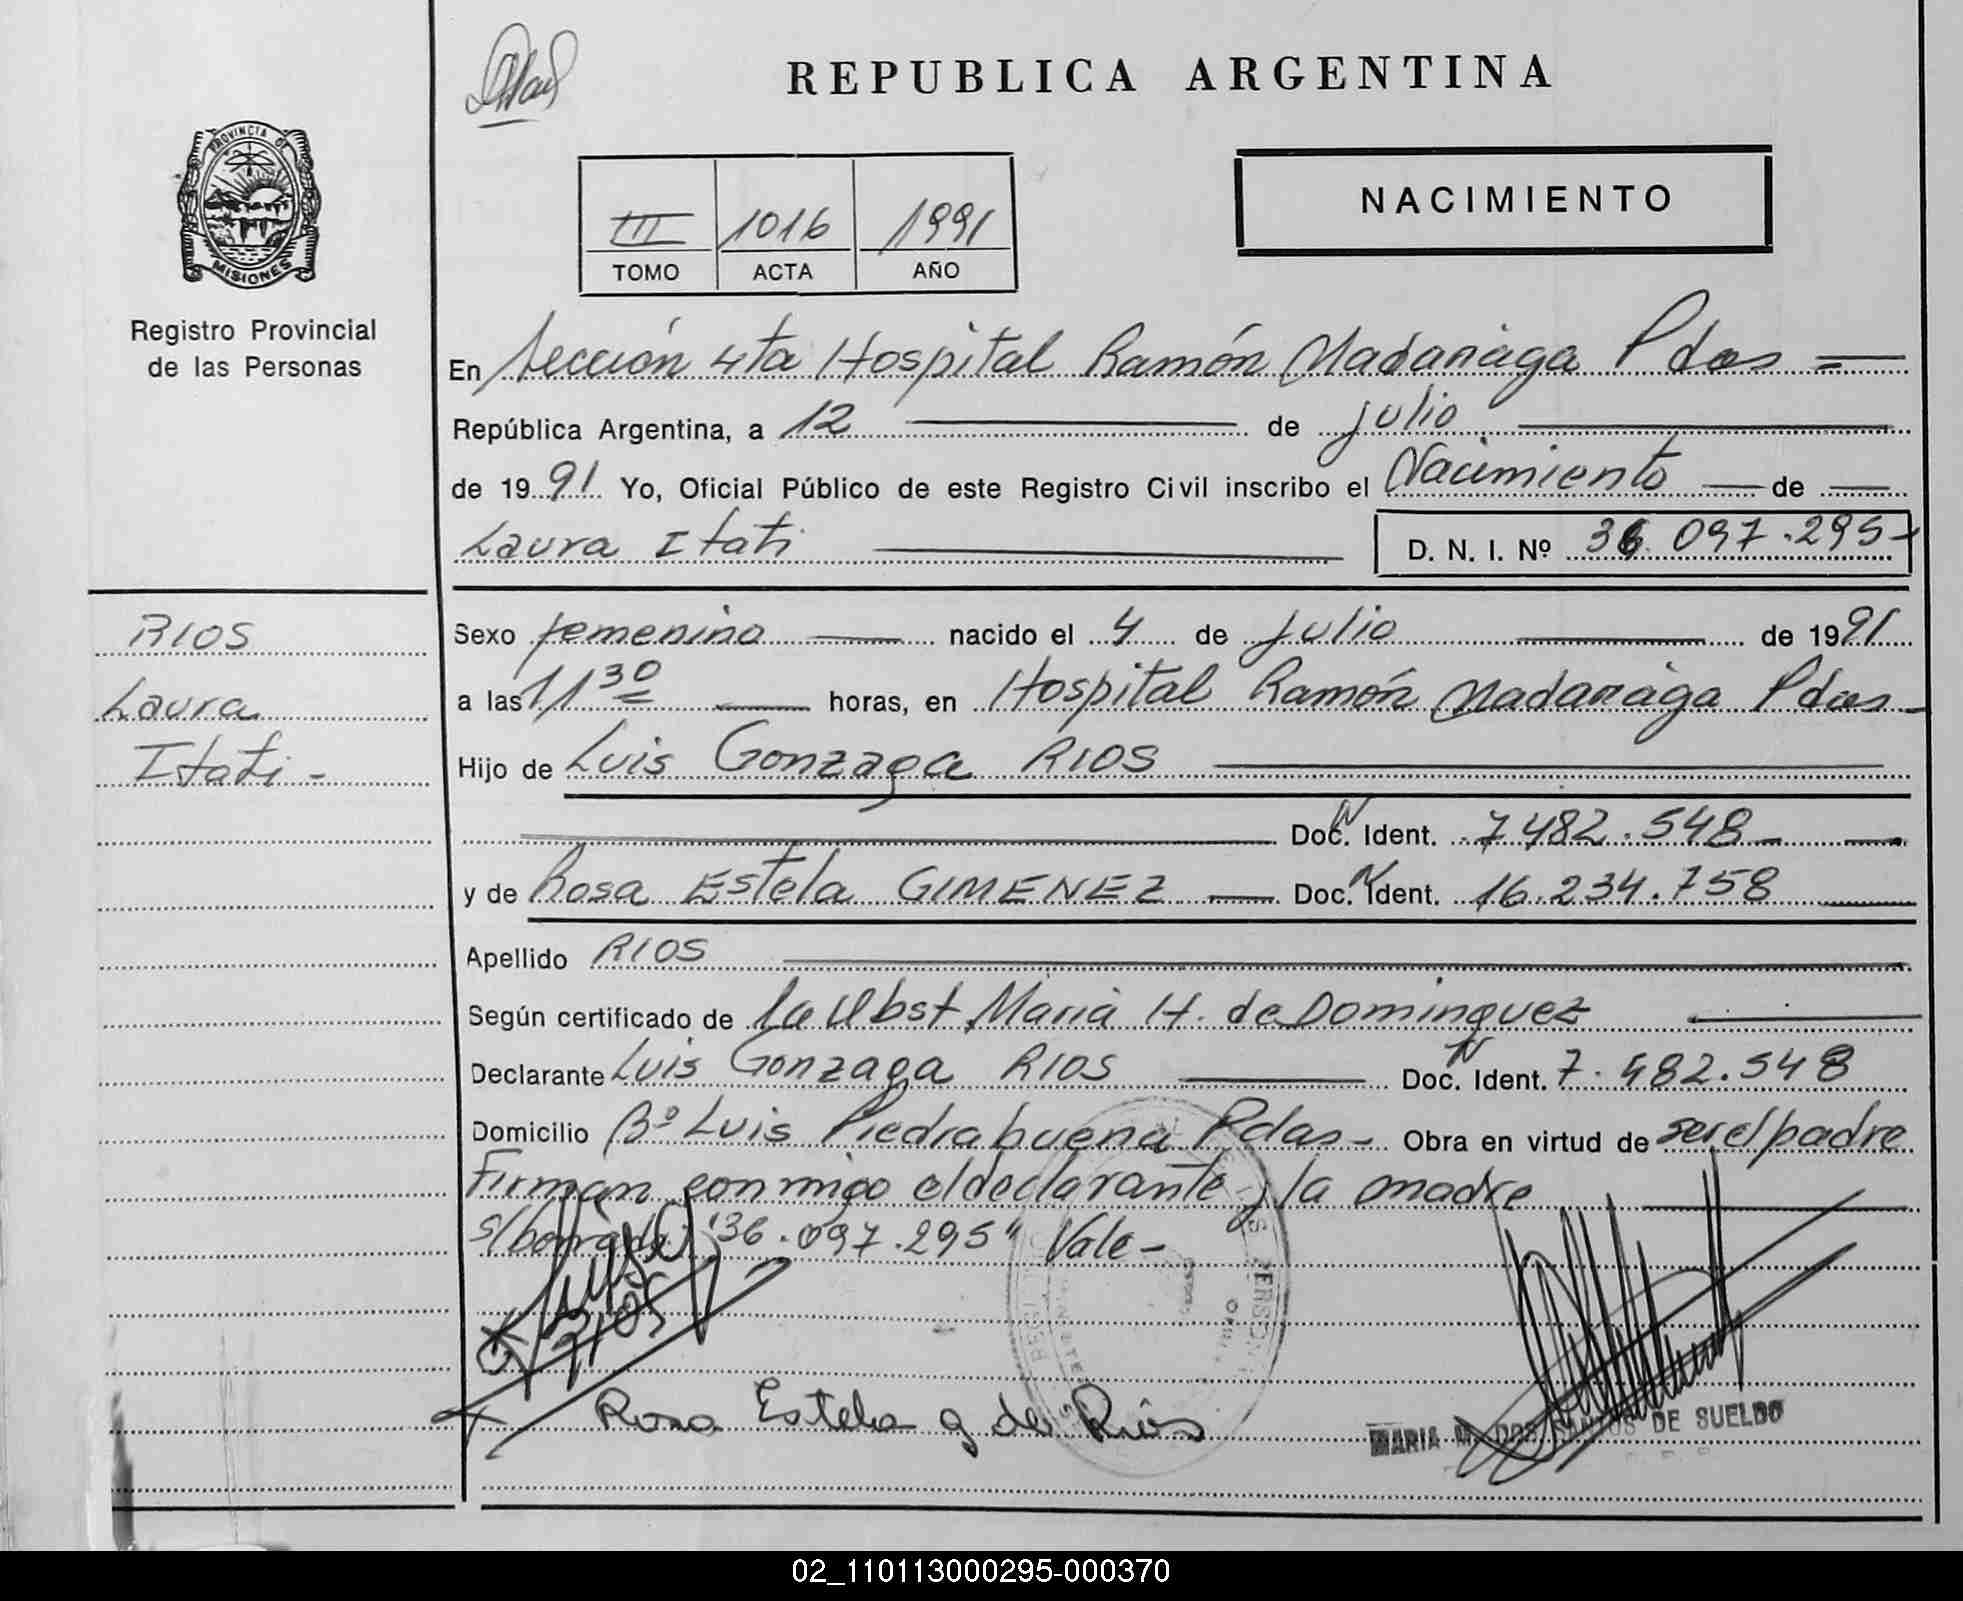 REPUBLICA ARGENTINA
PROVINCIA DE
MISIONES
Registro Provincial
de las Personas
III 1016 1991
TOMO ACTA AÑO
NACIMIENTO
En Sección 4ta Hospital Ramón Madariaga Pdas
República Argentina, a 12 de julio
de 1991 Yo, Oficial Público de este Registro Civil inscribo el Nacimiento de
Laura Itati D. N. I. Nº 36.097.295
RIOS
Laura
Itati
Sexo femenino nacido el 4 de julio de 1991
a las 11 30 horas, en Hospital Ramón Madariaga Pdas
Hijo de Luis Gonzaga RIOS
Doc. Ident. 7.482.548
y de Rosa Estela GIMENEZ Doc. Ident. 16.234.758
Apellido RIOS
Según certificado de la Obst. Maria H. de Dominguez
Declarante Luis Gonzaga RIOS Doc. Ident. 7.482.548
Domicilio Bº Luis Piedrabuena Pdas - Obra en virtud de ser el padre
Firman conmigo el declarante y la madre
s/borrado "36.097.295" Vale -
Rios
Rosa Estela g de Rios
MARIA M. DOS SANTOS DE SUELDO
02_110113000295-000370